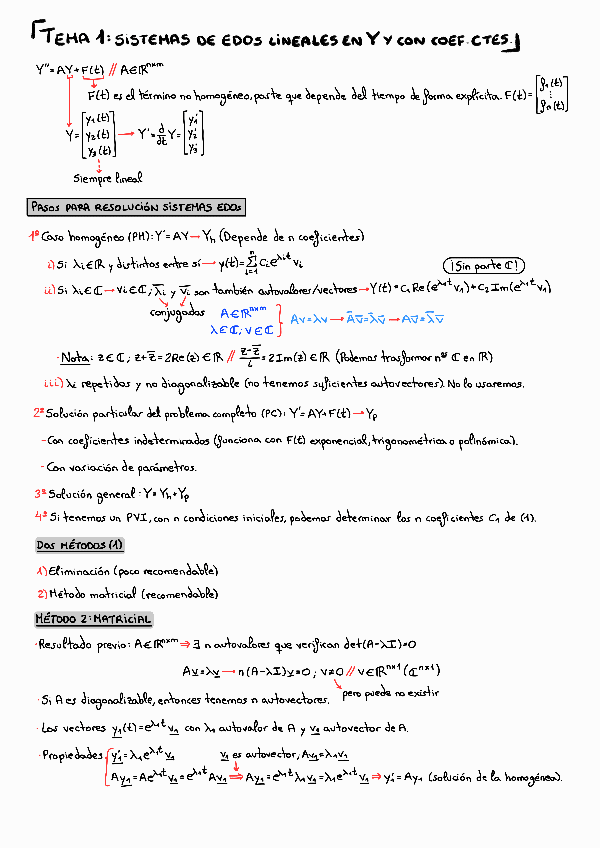 TEMA 1: SISTEMAS DE EDOS LINEALES EN Y Y CON COEF. CTES.
Y''=AY+F(t) // A∈ℝⁿˣᵐ
F(t) es el término no homogéneo, parte que depende del tiempo de forma explícita. F(t)=[f₁(t) ⋮ fₙ(t)]
Y=[y₁(t) y₂(t) y₃(t)] → Y'=d/dt Y=[y₁' y₂' y₃']
Siempre lineal
PASOS PARA RESOLUCIÓN SISTEMAS EDOs
1º Caso homogéneo (PH): Y'=AY → Yₕ (Depende de n coeficientes)
i) Si λᵢ∈ℝ y distintos entre sí → y(t)=∑ᵢ₌₁ⁿ Cᵢe^(λᵢt) vᵢ
¡Sin parte ℂ!
ii) Si λᵢ∈ℂ → vᵢ∈ℂ; λ̄ᵢ y v̄ᵢ son también autovalores/vectores → Y(t)=C₁Re(e^(λ₁t)v₁)+C₂Im(e^(λ₁t)v₁)
conjugados A∈ℝⁿˣᵐ λ∈ℂ; v∈ℂ } Av=λv → A̅v̅=λ̅v̅ → Av̅=λ̅v̅
·Nota: z∈ℂ; z+z̄=2Re(z)∈ℝ // (z-z̄)/i=2Im(z)∈ℝ (Podemos trasformar nºs ℂ en ℝ)
iii) λᵢ repetidos y no diagonalizable (no tenemos suficientes autovectores). No lo usaremos.
2º Solución particular del problema completo (PC): Y'=AY+F(t) → Yₚ
-Con coeficientes indeterminados (funciona con F(t) exponencial, trigonométrica o polinómica).
-Con variación de parámetros.
3º Solución general: Y=Yₕ+Yₚ
4º Si tenemos un PVI, con n condiciones iniciales, podemos determinar los n coeficientes C₁ de (1).
DOS MÉTODOS (1)
1) Eliminación (poco recomendable)
2) Método matricial (recomendable)
MÉTODO 2: MATRICIAL
·Resultado previo: A∈ℝⁿˣᵐ ⇒ ∃ n autovalores que verifican det(A-λI)=0
Av=λv → n(A-λI)v=0; v≠0 // v∈ℝⁿˣ¹(ℂⁿˣ¹)
pero puede no existir
·Si A es diagonalizable, entonces tenemos n autovectores.
·Los vectores y₁(t)=e^(λ₁t)v₁ con λ₁ autovalor de A y v₁ autovector de A.
·Propiedades { y₁'=λ₁e^(λ₁t)v₁ v₁ es autovector, Av₁=λ₁v₁
Ay₁=Ae^(λ₁t)v₁=e^(λ₁t)Av₁ ⇒ Ay₁=e^(λ₁t)λ₁v₁=λ₁e^(λ₁t)v₁ ⇒ y₁'=Ay₁ (solución de la homogénea).